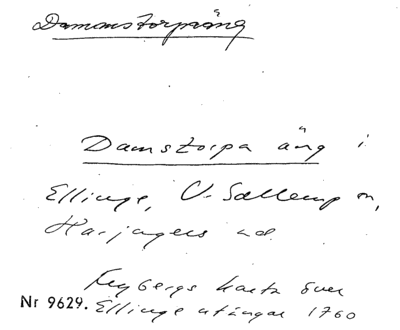 Damanstorpäng
Damstorpa äng i
Ellinge, V. Sallerup sn,
Harjagers hd.
Rybergs karta över
Nr 9629. Ellinge utängar 1760